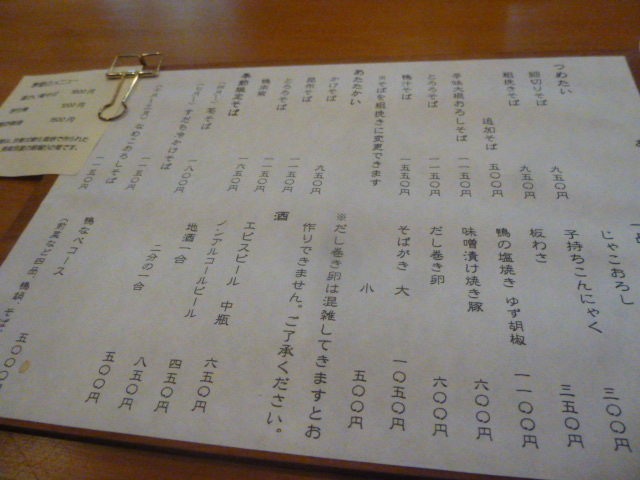 つめたい
細切りそば 九五〇円
粗挽きそば 九五〇円
追加そば 五〇〇円
辛味大根おろしそば 一一五〇円
とろろそば 一一五〇円
鴨汁そば 一五五〇円
※そばを粗挽きに変更できます
あたたかい
かけそば 九五〇円
そば 一一五〇円
とろろそば 一一五〇円
鴨南蛮
季節限定そば
すだちかけそば 一八〇〇円
なめこおろしそば 一一五〇円
一一五〇円
一品
じゃこおろし 三〇〇円
子持ちこんにゃく 三五〇円
板わさ 五〇〇円
鴨の塩焼き ゆず胡椒 一一〇〇円
味噌漬け焼き豚 六〇〇円
だし巻き卵 六〇〇円
そばがき 大 一〇五〇円
小 五〇〇円
※だし巻き卵は混雑してきますとお
作りできません。ご了承ください。
酒
エビスビール 中瓶 六五〇円
ノンアルコールビール 四五〇円
地酒一合 八五〇円
二分の一合 五〇〇円
鴨なべコース
五〇〇〇円